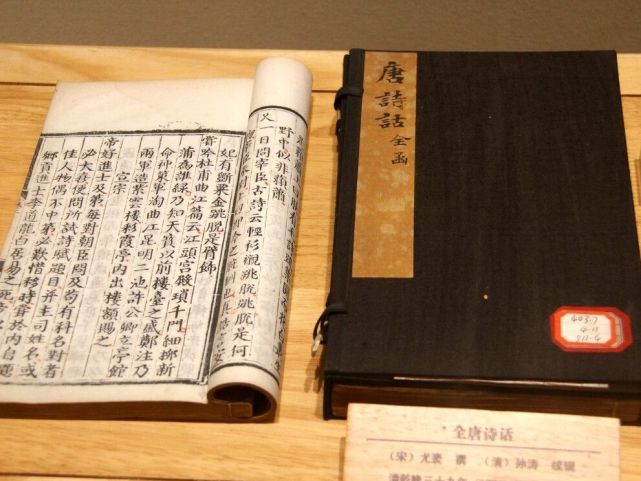 又一日問宰臣古詩云輕衫襯跳脫跳脫是何
妃有斷粟金跳脫是臂飾
嘗吟杜甫曲江篇云江頭宮殿鎖千門細柳新
蒲為誰綠乃知天寶以前樓臺之盛鄭注乃
命神策軍淘曲江昆明二池許公卿立亭館
兩軍造紫雲樓彩霞亭內出樓額賜之
宣宗
帝好進士及第每對朝臣問及苟有科名對者
必大喜便問所試詩賦題目并主司姓名或
佳人物偶不中第必歎惜移時嘗於內自題
鄉貢進士李道龍白居易之死
唐詩話 全函
403.7
全唐诗话
(宋) 尤袤 撰 (清) 孙涛 续辑
清乾隆三十九年